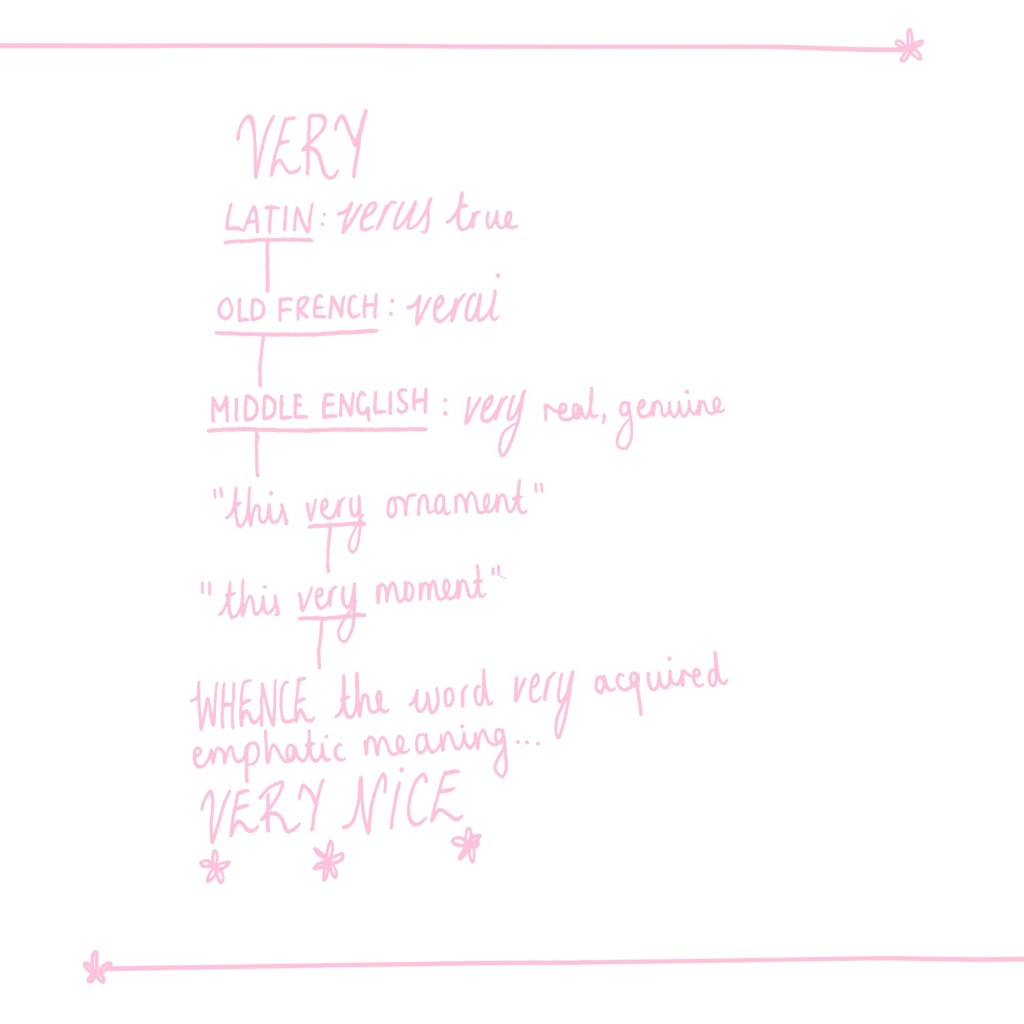 VERY
LATIN: verus true
OLD FRENCH: verai
MIDDLE ENGLISH: very real, genuine
"this very ornament"
"this very moment"
WHENCE the word very acquired
emphatic meaning...
VERY NICE